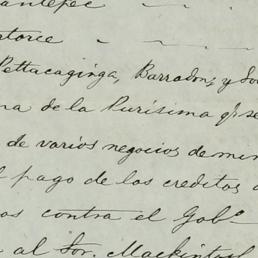 antepec
atorce
Pettacaginga, Barradon, y So
na de la Purísima q.e se
de varios negocios de min
l pago de los creditos
os contra el Gob.o
al Sor. Mackintosh